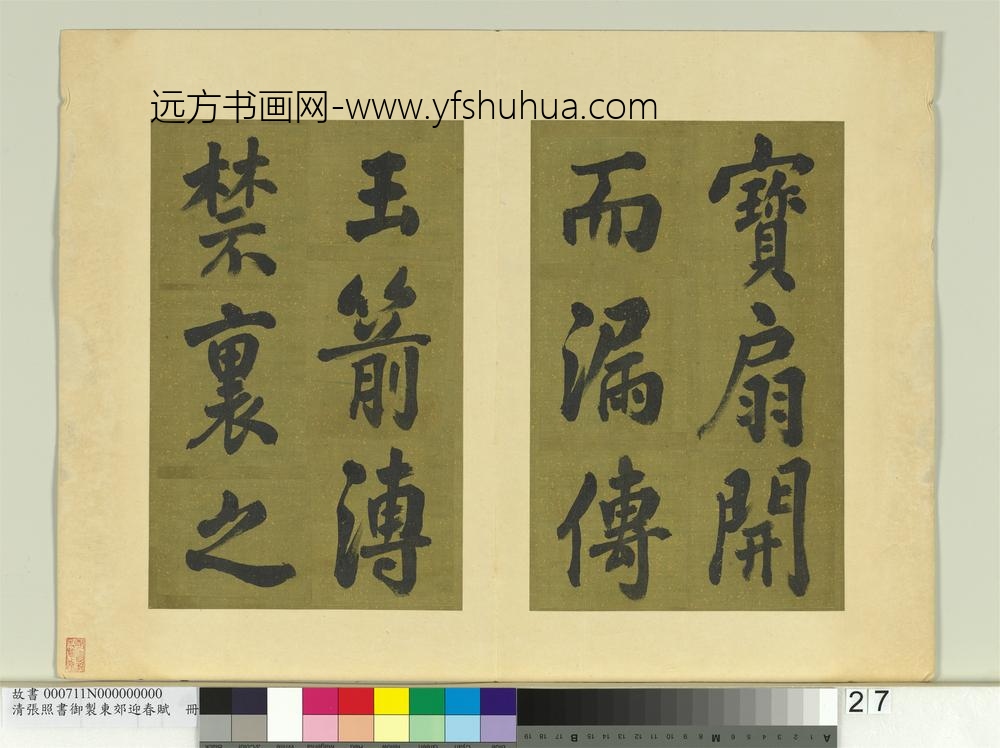 远方书画网-www.yfshuhua.com
寶扇開
而漏傳
玉箭溥
禁裏之
故書 000711N000000000
清張照書御製東郊迎春賦 冊
27